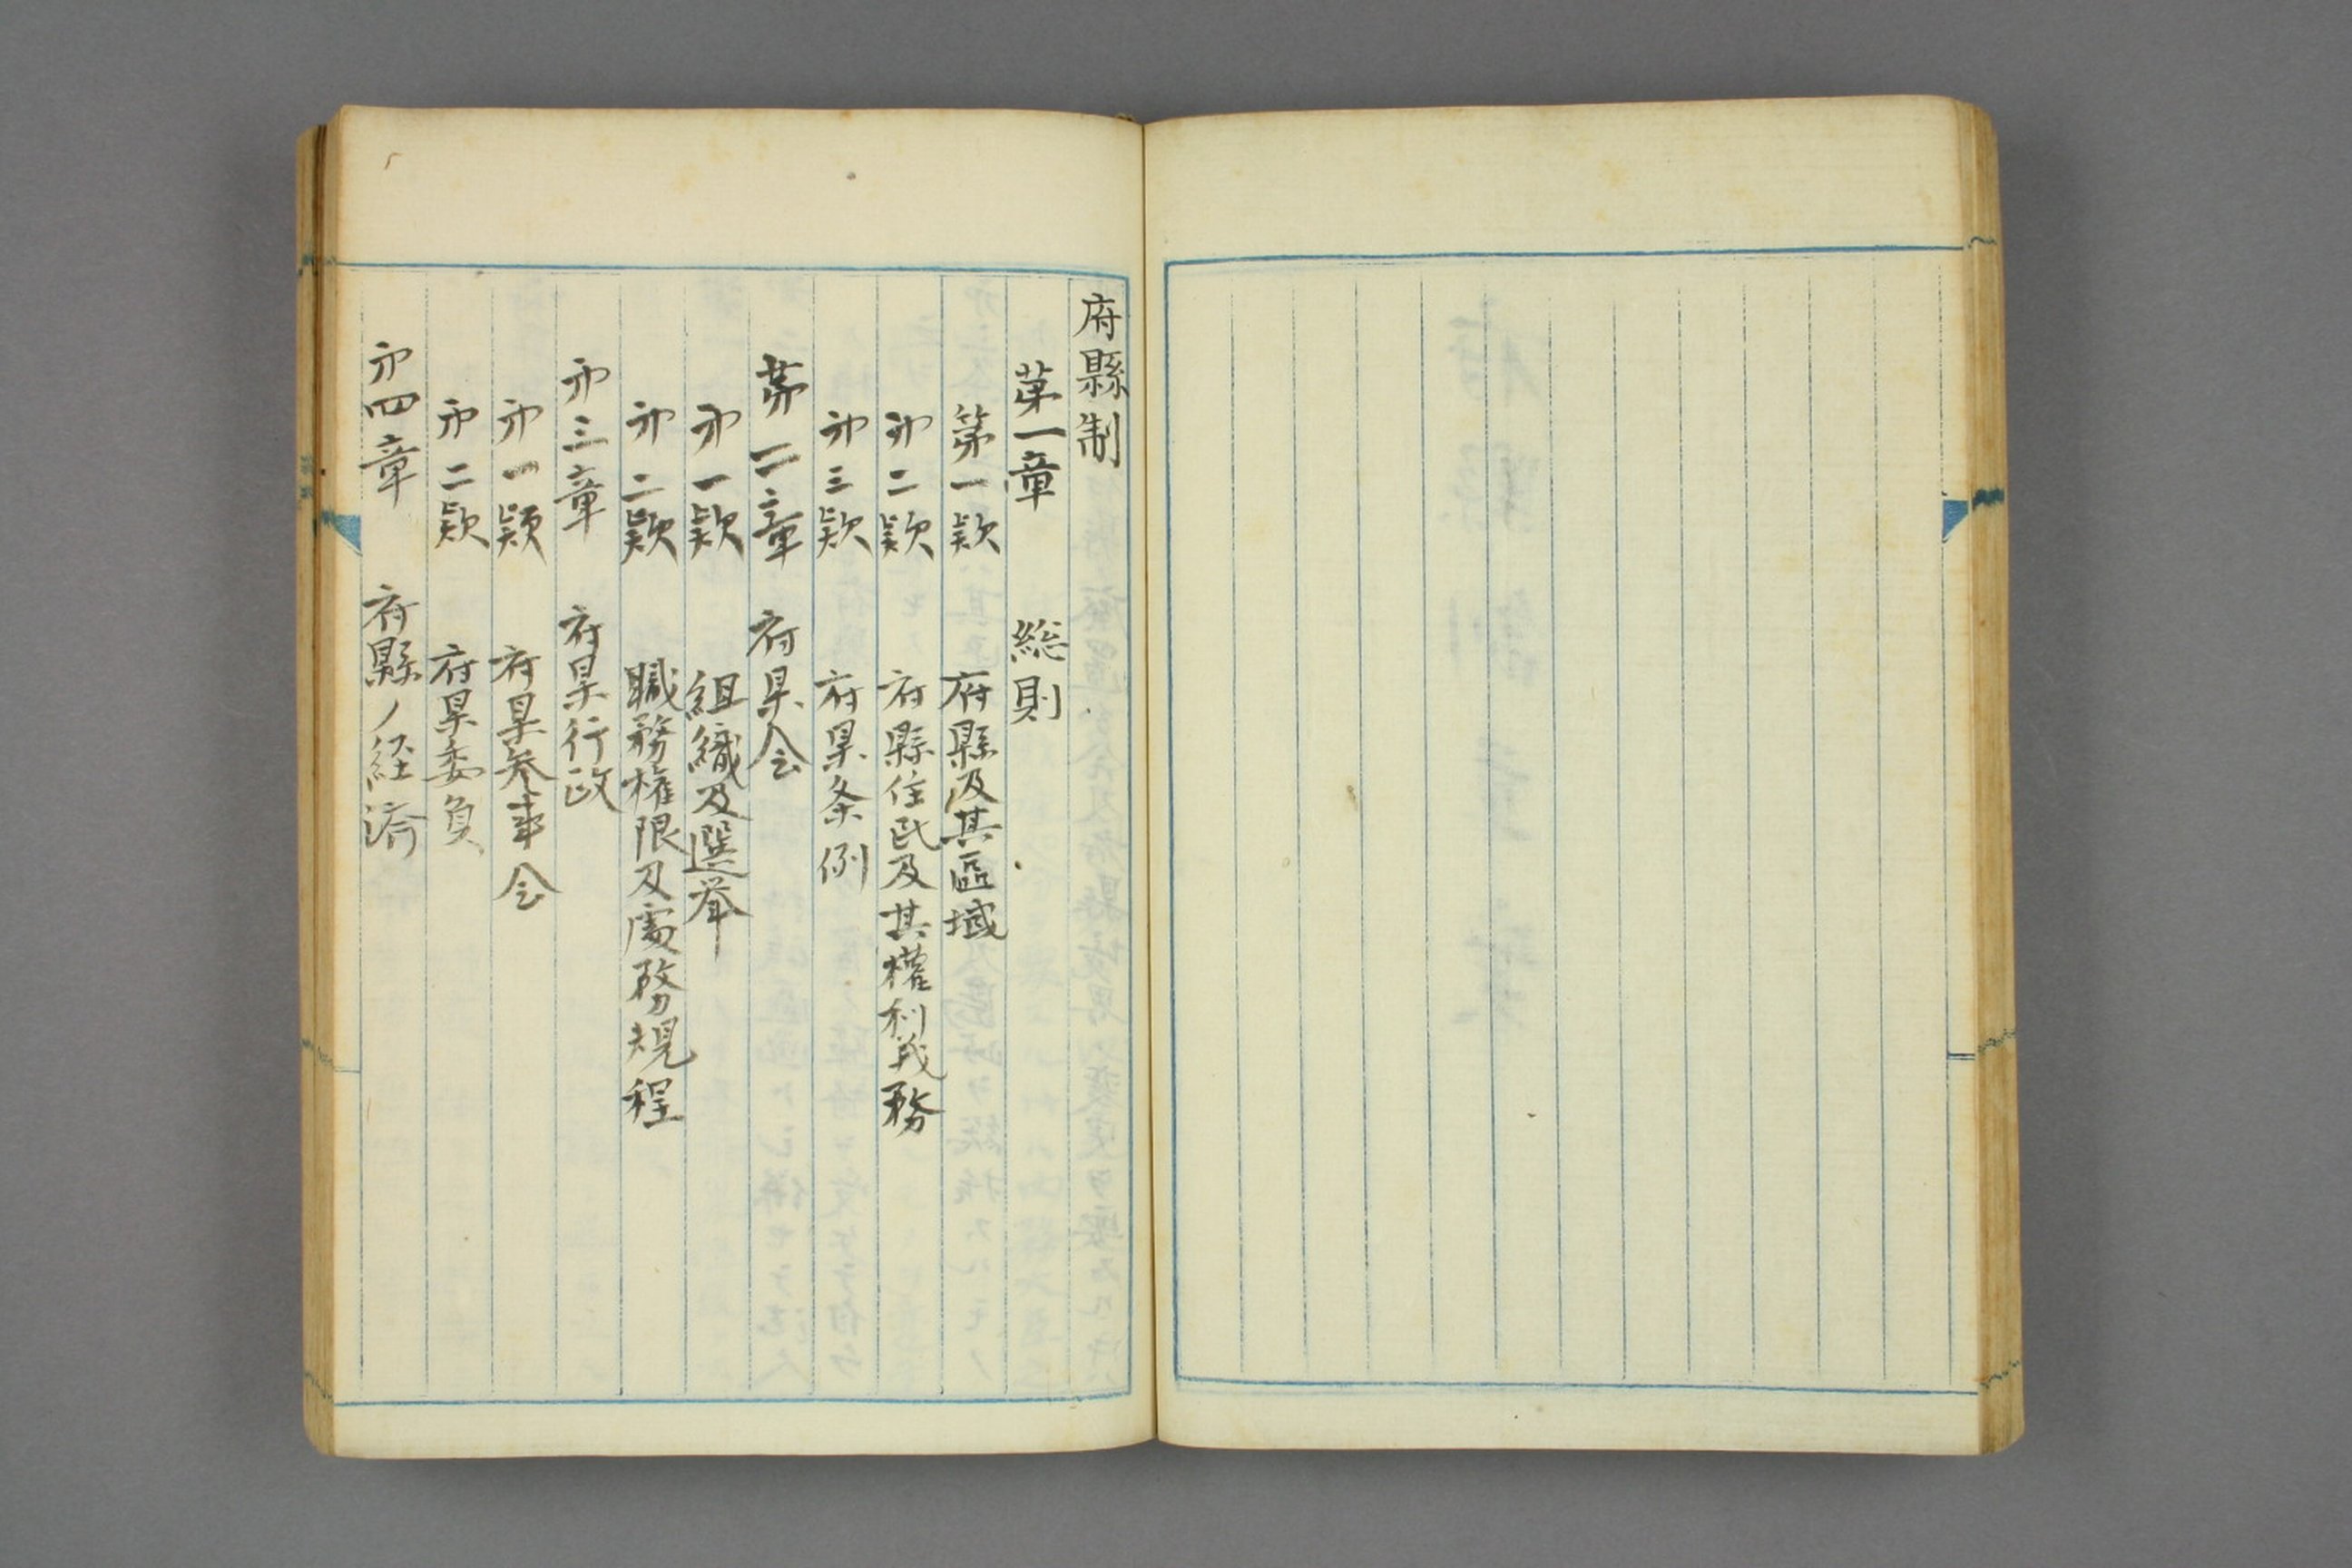 府縣制
第一章　総則
第一款　府縣及其區域
第二款　府縣住民及其權利義務
第三款　府県条例
第二章　府県会
第一款　組織及選挙
第二款　職務権限及處務規程
第三章　府県行政
第一款　府県参事会
第二款　府県委員
第四章　府縣ノ経済